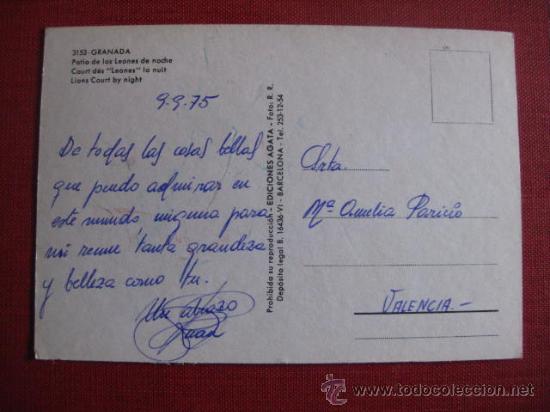 3153-GRANADA
Patio de los Leones de noche
Court dés "Leones" la nuit
Lions Court by night
9-9-75
De todas las cosas bellas
que puedo admirar en
este mundo ninguna para
mi reune tanta grandeza
y belleza como tu.
Un abrazo
Juan
Prohibida su reproducción - EDICIONES AGATA - Foto: R. R.
Depósito legal B. 16436-VI - BARCELONA - Tel. 253-12-54
Srta.
Mª Amelia Paricio
VALENCIA.-
todocoleccion
www.todocoleccion.net